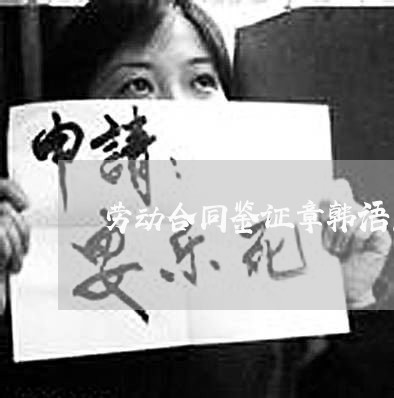 申請：
劳动合同鉴证章韩语
安乐死